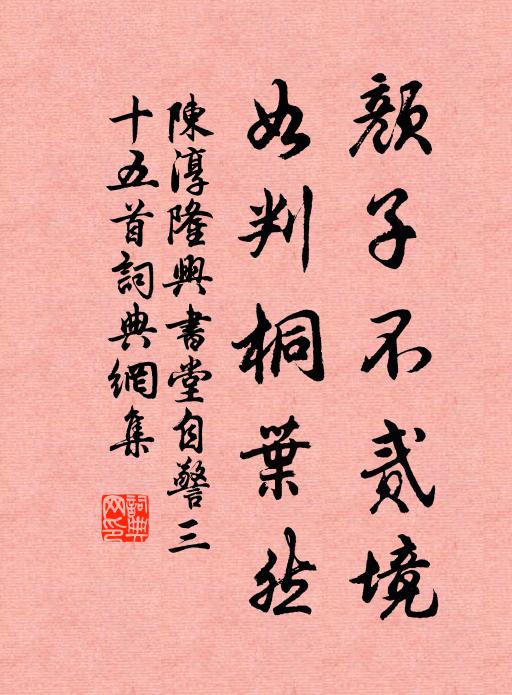 顏子不貳境
如判桐葉然
陳淳隆興書堂自警三
十五首詞典網集
詞典
网印